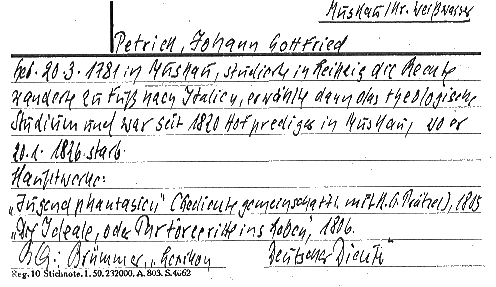 Muskau/Kr. Weißwasser
Petrick, Johann Gottfried
geb. 20.3.1781 in Muskau, studierte in Leipzig die Rechte
wanderte zu Fuß nach Italien, erwählte dann das theologische
Studium und war seit 1820 Hofprediger in Muskau, wo er
20.1.1826 starb.
Hauptwerke:
„Jugendphantasien" (Gedichte gemeinschaftl. mit K.G. Prätzel), 1805
„Die Ideale, oder Thr ins Leben", 1806.
Brümmer „Lexikon Deutscher Dichter"
Reg. 10 Stichnote. 1. 50. 232000. A. 803. S. 4662